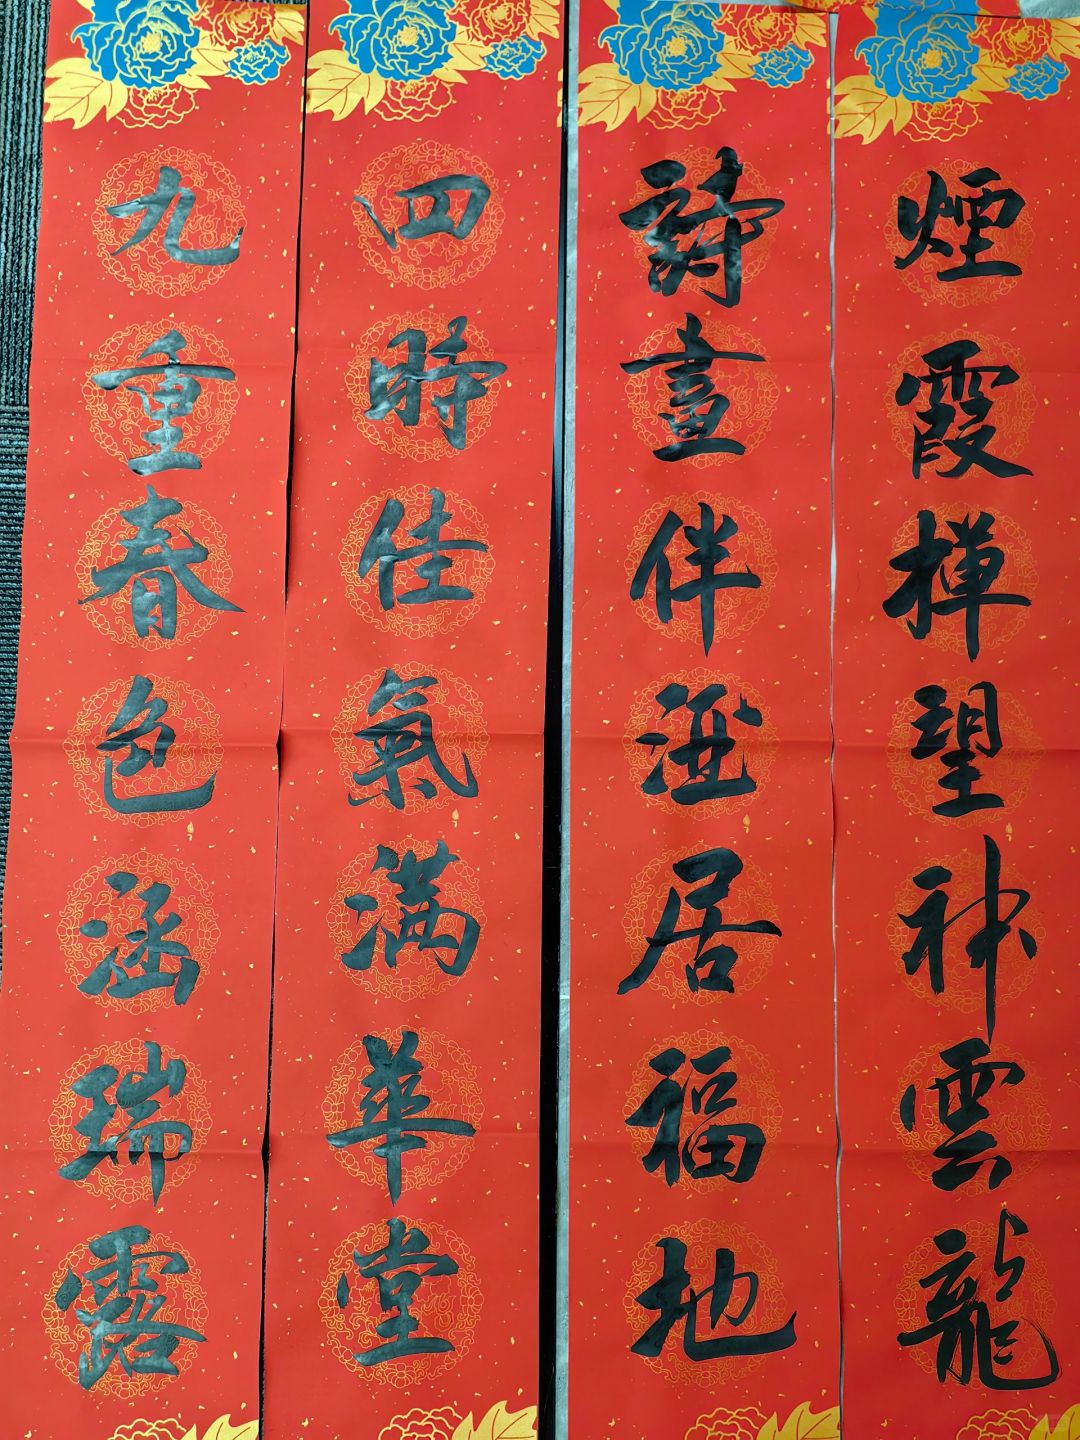 煙霞揮望神雲龍
詩畫伴酒居福地
四時佳氣滿華堂
九重春色涵瑞露